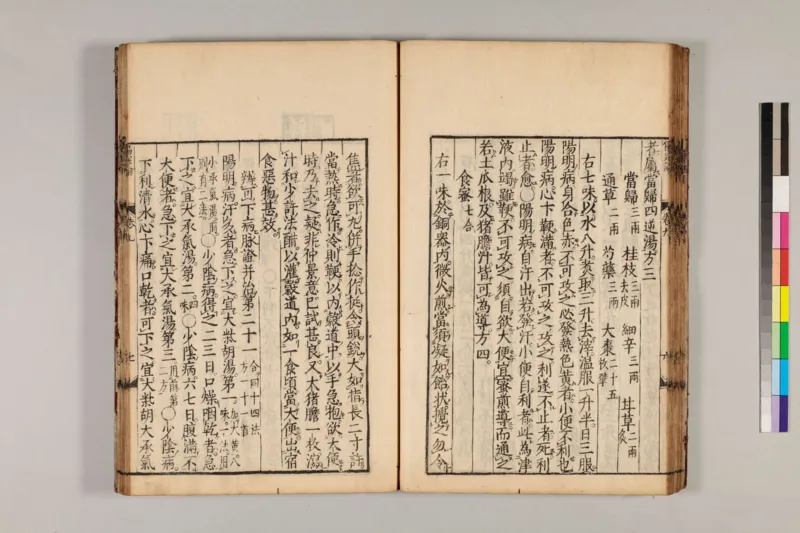 者屬當歸四逆湯方三
當歸三兩 桂枝三兩去皮 細辛三兩 甘草二兩炙
通草二兩 芍藥三兩 大棗二十五枚擘
右七味以水八升煮取三升去滓溫服一升半日三服
陽明病身合色赤不可攻之必發熱色黃者小便不利也
陽明病心下鞕滿者不可攻之攻之利遂不止者死利
止者愈〇陽明病自汗出若發汗小便自利者此為津
液內竭雖鞕不可攻之須自欲大便宜蜜煎導而通之
若土瓜根及猪膽汁皆可為導方四
食蜜七合
右一味於銅器內微火煎當須凝如飴狀攪之勿令
焦著欲可丸併手捻作挺令頭銳大如指長二寸許
當熱時急作冷則鞕以內穀道中以手急抱欲大便
時乃去之疑非仲景意已試甚良又大猪膽一枚瀉
汁和少許法醋以灌穀道內如一食頃當大便出宿
食惡物甚效
辨可下病脉證并治第二十一 合四十四法方一十一首
陽明病汗多者急下之宜大柴胡湯第一加大黃八味一法用
小承氣湯〇少陰病得之二三日口燥咽乾者急
下之宜大承氣湯第二四味〇少陰病六七日腹滿不
大便者急下之宜大承氣湯第三用前第二方〇少陰病
下利清水心下痛口乾者可下之宜大柴胡大承氣